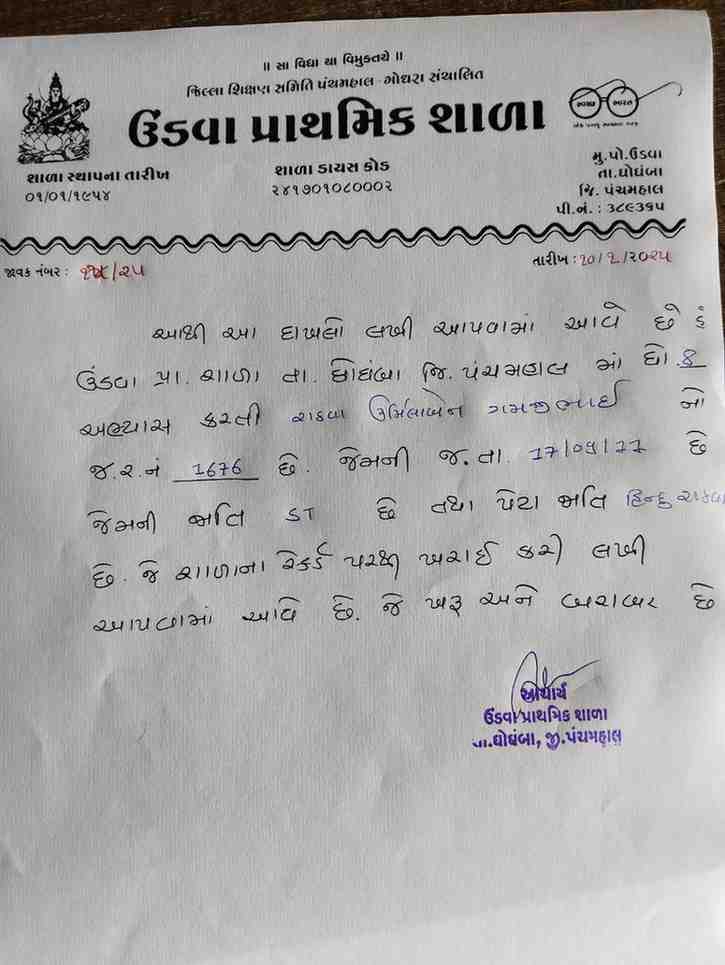 ॥ સા વિદ્યા યા વિમુક્તયે ॥
જિલ્લા શિક્ષણ સમિતિ પંચમહાલ - ગોધરા સંચાલિત
ઉંડવા પ્રાથમિક શાળા
શાળા સ્થાપના તારીખ
૦૧/૦૧/૧૯૫૪
શાળા ડાયસ કોડ
૨૪૧૭૦૧૦૮૦૦૦૨
મુ.પો.ઉંડવા
તા.ઘોઘંબા
જિ. પંચમહાલ
પી.નં. : ૩૮૯૩૬૫
જાવક નંબર : /૨૫
તારીખ : /૨૦૨૫
આથી આ દાખલો લખી આપવામાં આવે છે કે
ઉંડવા પ્રા. શાળા તા. ઘોઘંબા જિ. પંચમહાલ માં ધો. 8
અભ્યાસ કરતી રાઠવા ઉર્મિલાબેન ગમજીભાઈ નો
જ.ર.નં 1676 છે. જેમની જ.તા. છે
જેમની જાતિ ST છે તથા પેટા જાતિ હિન્દુ રાઠવા
છે. જે શાળાના રેકર્ડ પરથી ખરાઈ કરી લખી
આપવામાં આવે છે. જે ખરૂ અને બરાબર છે
આચાર્ય
ઉંડવા પ્રાથમિક શાળા
તા.ઘોઘંબા, જી.પંચમહાલ